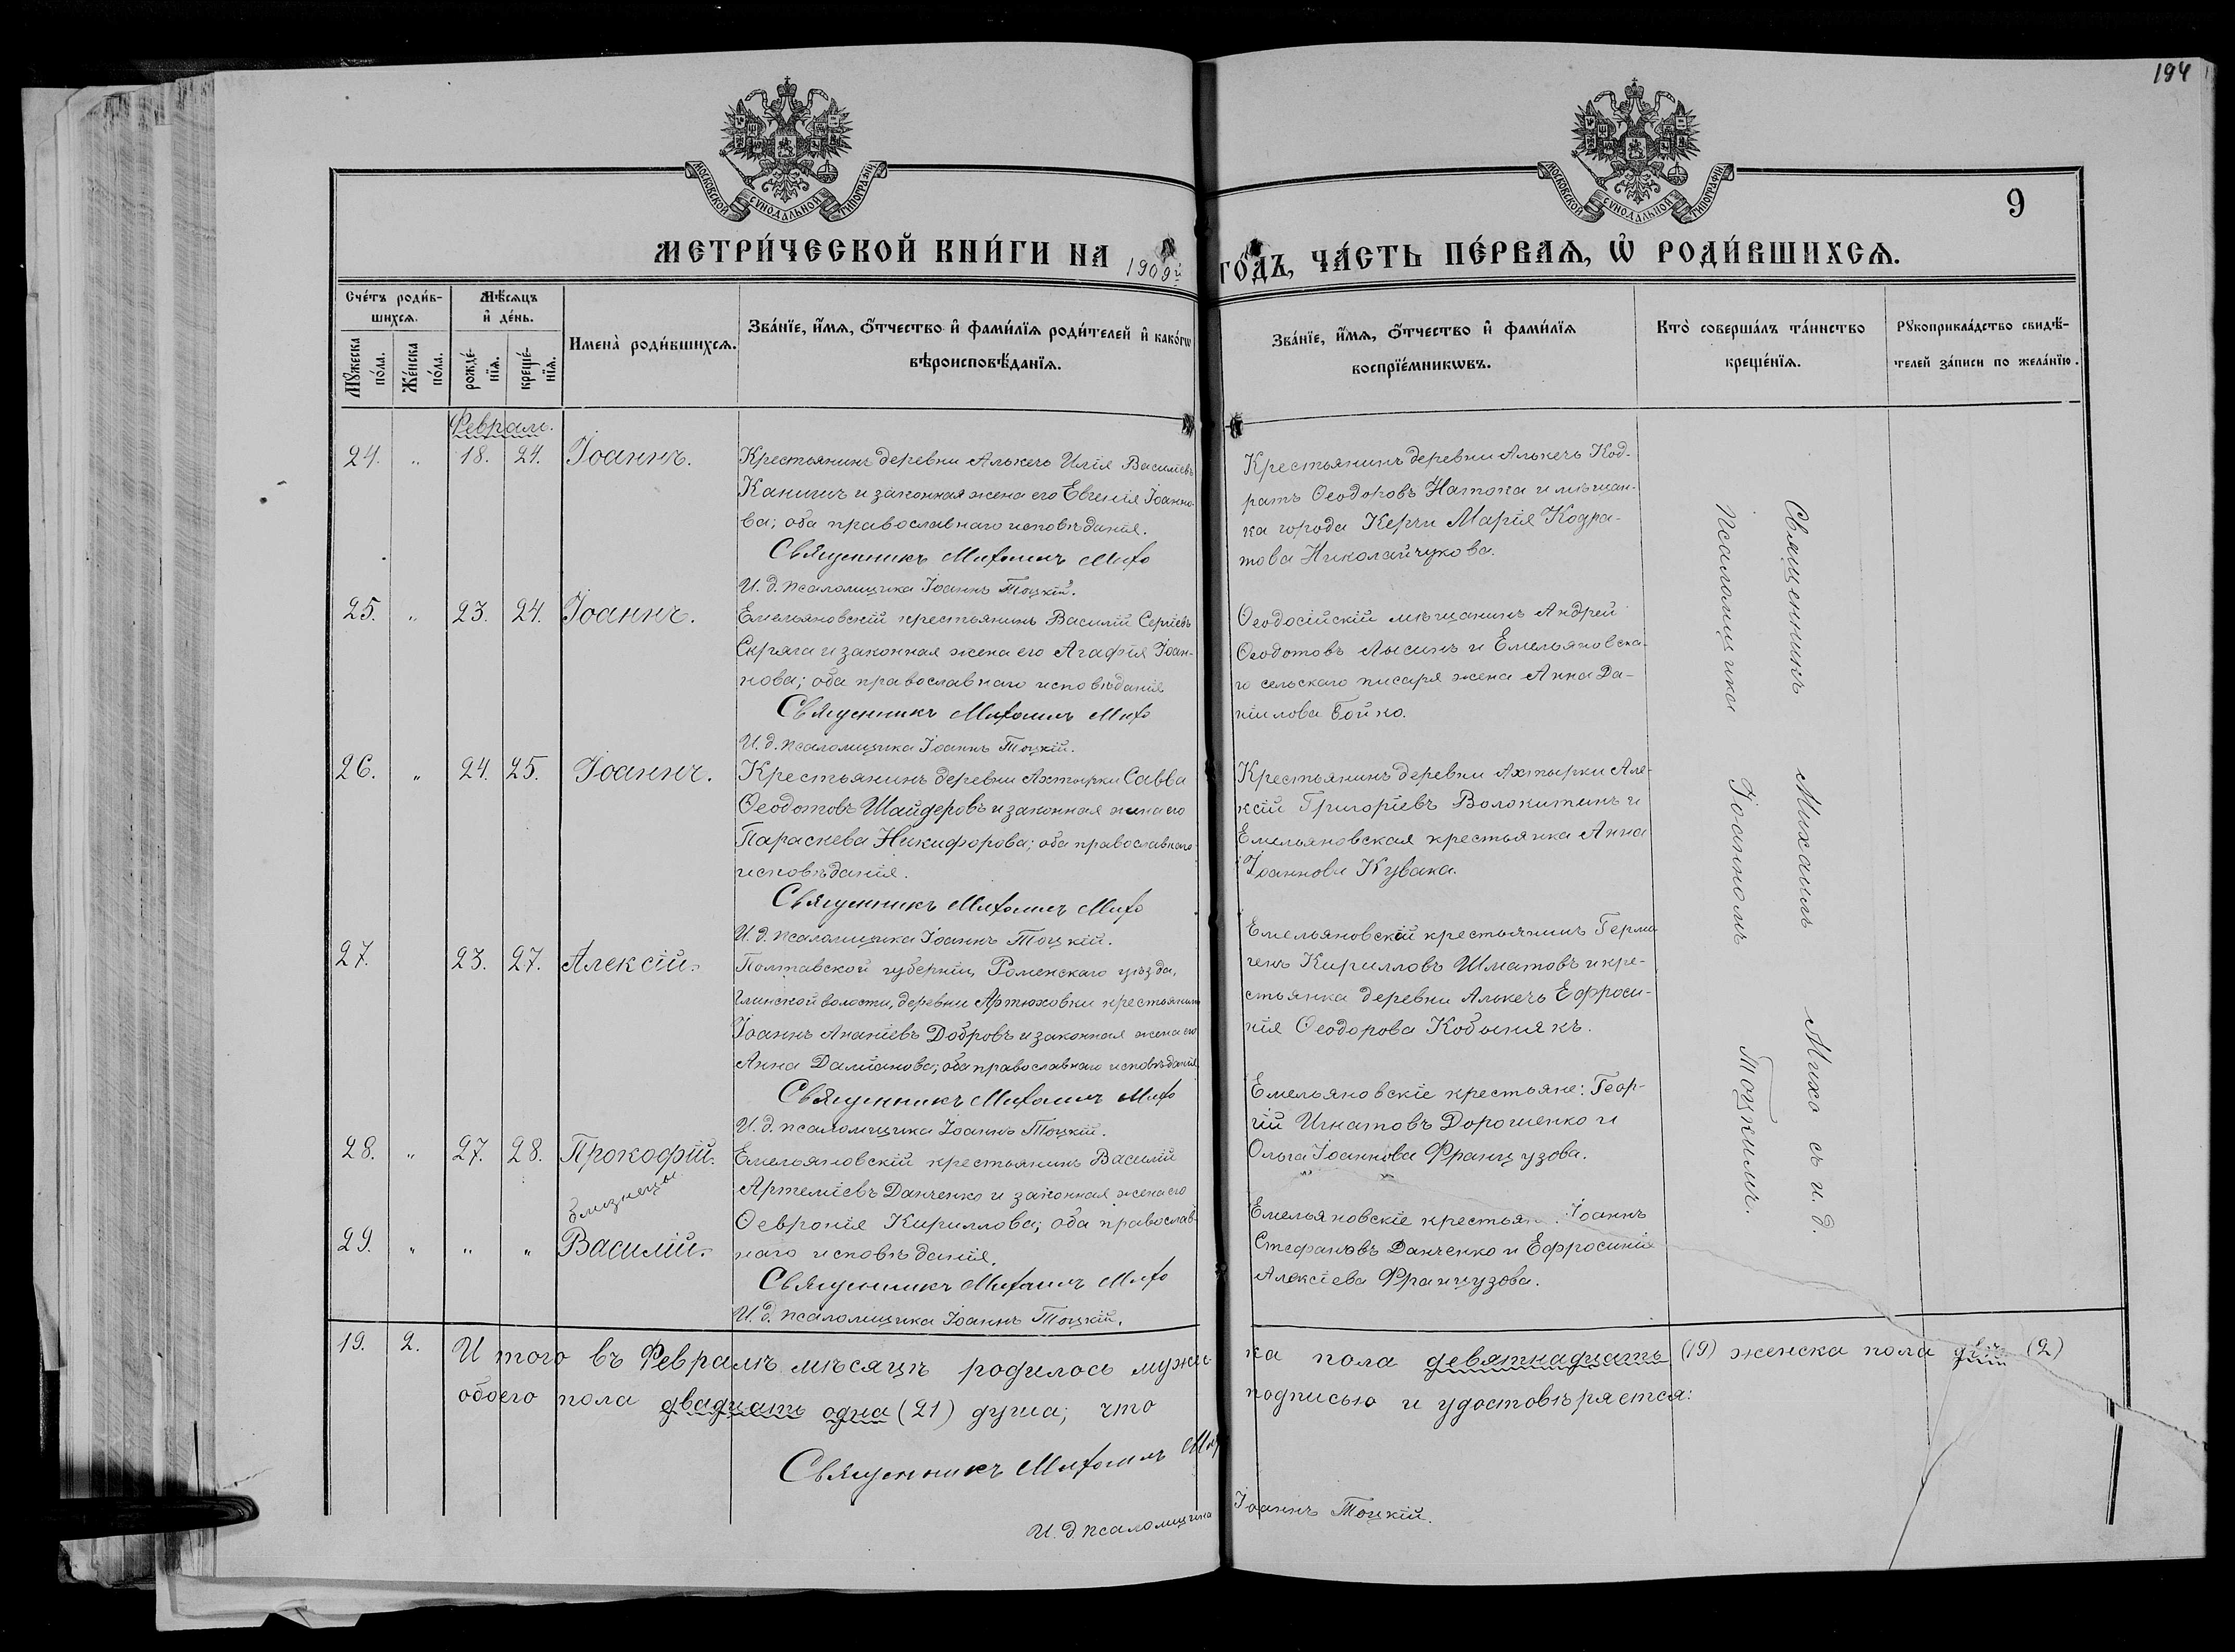 194
МОСКОВСКОЙ СѴНОДАЛЬНОЙ ТИПОГРАФІИ
МОСКОВСКОЙ СѴНОДАЛЬНОЙ ТИПОГРАФІИ
9
МЕТРИ́ЧЕСКОЙ КНИ́ГИ НА 1909й ГО́ДЪ, ЧА́СТЬ ПЕ́РВАѦ, Ѡ РОДИ́ВШИХСѦ.
Сче́тъ роди́в-
шихсѧ.
Мꙋжеска по́ла.
Же́нска по́ла.
Мѣ́сѧцъ
и҆ де́нь.
рожде́-
нїѧ.
креще́-
нїѧ.
Имена̀ роди́вшихсѧ.
Зва́нїе, и҆́мѧ, ѻ҆́тчество и҆ фами́лїѧ роди́телей и҆ како́гѡ
вѣроисповѣ́данїѧ.
Зва́нїе, и҆́мѧ, ѻ҆́тчество и҆ фами́лїѧ
воспрїе́мникѡвъ.
Кто̀ соверша́лъ та́инство
креще́нїѧ.
Рꙋкоприкла́дство свидѣ́-
телей за́писи по жела́нїю.
Февраль.
24. " 18. 24. Іоаннъ.
Крестьянинъ деревни Алькечь Илія Василіевъ
Каничъ и законная жена его Евгенія Іоанно-
ва; оба православнаго исповѣданія.
Священникъ Михаилъ Михо
И. д. псаломщика Іоаннъ Тоцкій.
Крестьянинъ деревни Алькечь Код-
ратъ Ѳеодоровъ Натока и мѣщан-
ка города Керчи Марія Кодра-
това Николайчукова.
25. " 23. 24. Іоаннъ.
Емельяновскій крестьянинъ Василій Сергіевъ
Скряга и законная жена его Агафія Іоан-
нова; оба православнаго исповѣданія
Священникъ Михаилъ Михо
И. д. псаломщика Іоаннъ Тоцкій.
Ѳеодосійскій мѣщанинъ Андрей
Ѳеодотовъ Лысинъ и Емельяновска-
го сельскаго писаря жена Анна Да-
ніилова Бойко.
26. " 24. 25. Іоаннъ.
Крестьянинъ деревни Ахтырки Савва
Ѳеодотовъ Шайдеровъ и законная жена его
Параскева Никифорова; оба православнаго
исповѣданія.
Священникъ Михаилъ Михо
И. д. псаломщика Іоаннъ Тоцкій.
Крестьянинъ деревни Ахтырки Але-
ксій Григоріевъ Волокитинъ и
Емельяновская крестьянка Анна
Іоаннова Кувака.
27. 23. 27. Алексій.
Полтавской губерніи, Роменскаго уѣзда,
Глинской волости, деревни Артюховки крестьянинъ
Іоаннъ Ананіевъ Добровъ и законная жена его
Анна Даміанова; оба православнаго исповѣданія
Священникъ Михаилъ Михо
И. д. псаломщика Іоаннъ Тоцкій.
Емельяновскій крестьянинъ Герма-
генъ Кирилловъ Шматовъ и кре-
стьянка деревни Алькечь Ефроси-
нія Ѳеодорова Кобынякъ.
28. " 27. 28. Прокофій.
близнецы
29. " " " Василій.
Емельяновскій крестьянинъ Василій
Артеміевъ Данченко и законная жена его
Ѳевронія Кириллова; оба православ-
наго исповѣданія.
Священникъ Михаилъ Михо
И. д. псаломщика Іоаннъ Тоцкій.
Емельяновскіе крестьяне: Геор-
гій Игнатовъ Дорошенко и
Ольга Іоаннова Французова.
Емельяновскіе крестьян. Іоаннъ
Стефановъ Данченко и Ефросинія
Алексіева Французова.
Священникъ Михаилъ Михо съ и. д.
псаломщика Іоанномъ Тоцкимъ.
19. 2. Итого въ Февралѣ мѣсяцѣ родилось мужска пола девятнадцать (19) женска пола двѣ (2)
обоего пола двадцать одна (21) душа; что подписью и удостовѣряется:
Священникъ Михаилъ Михо
И. д. псаломщика Іоаннъ Тоцкій.